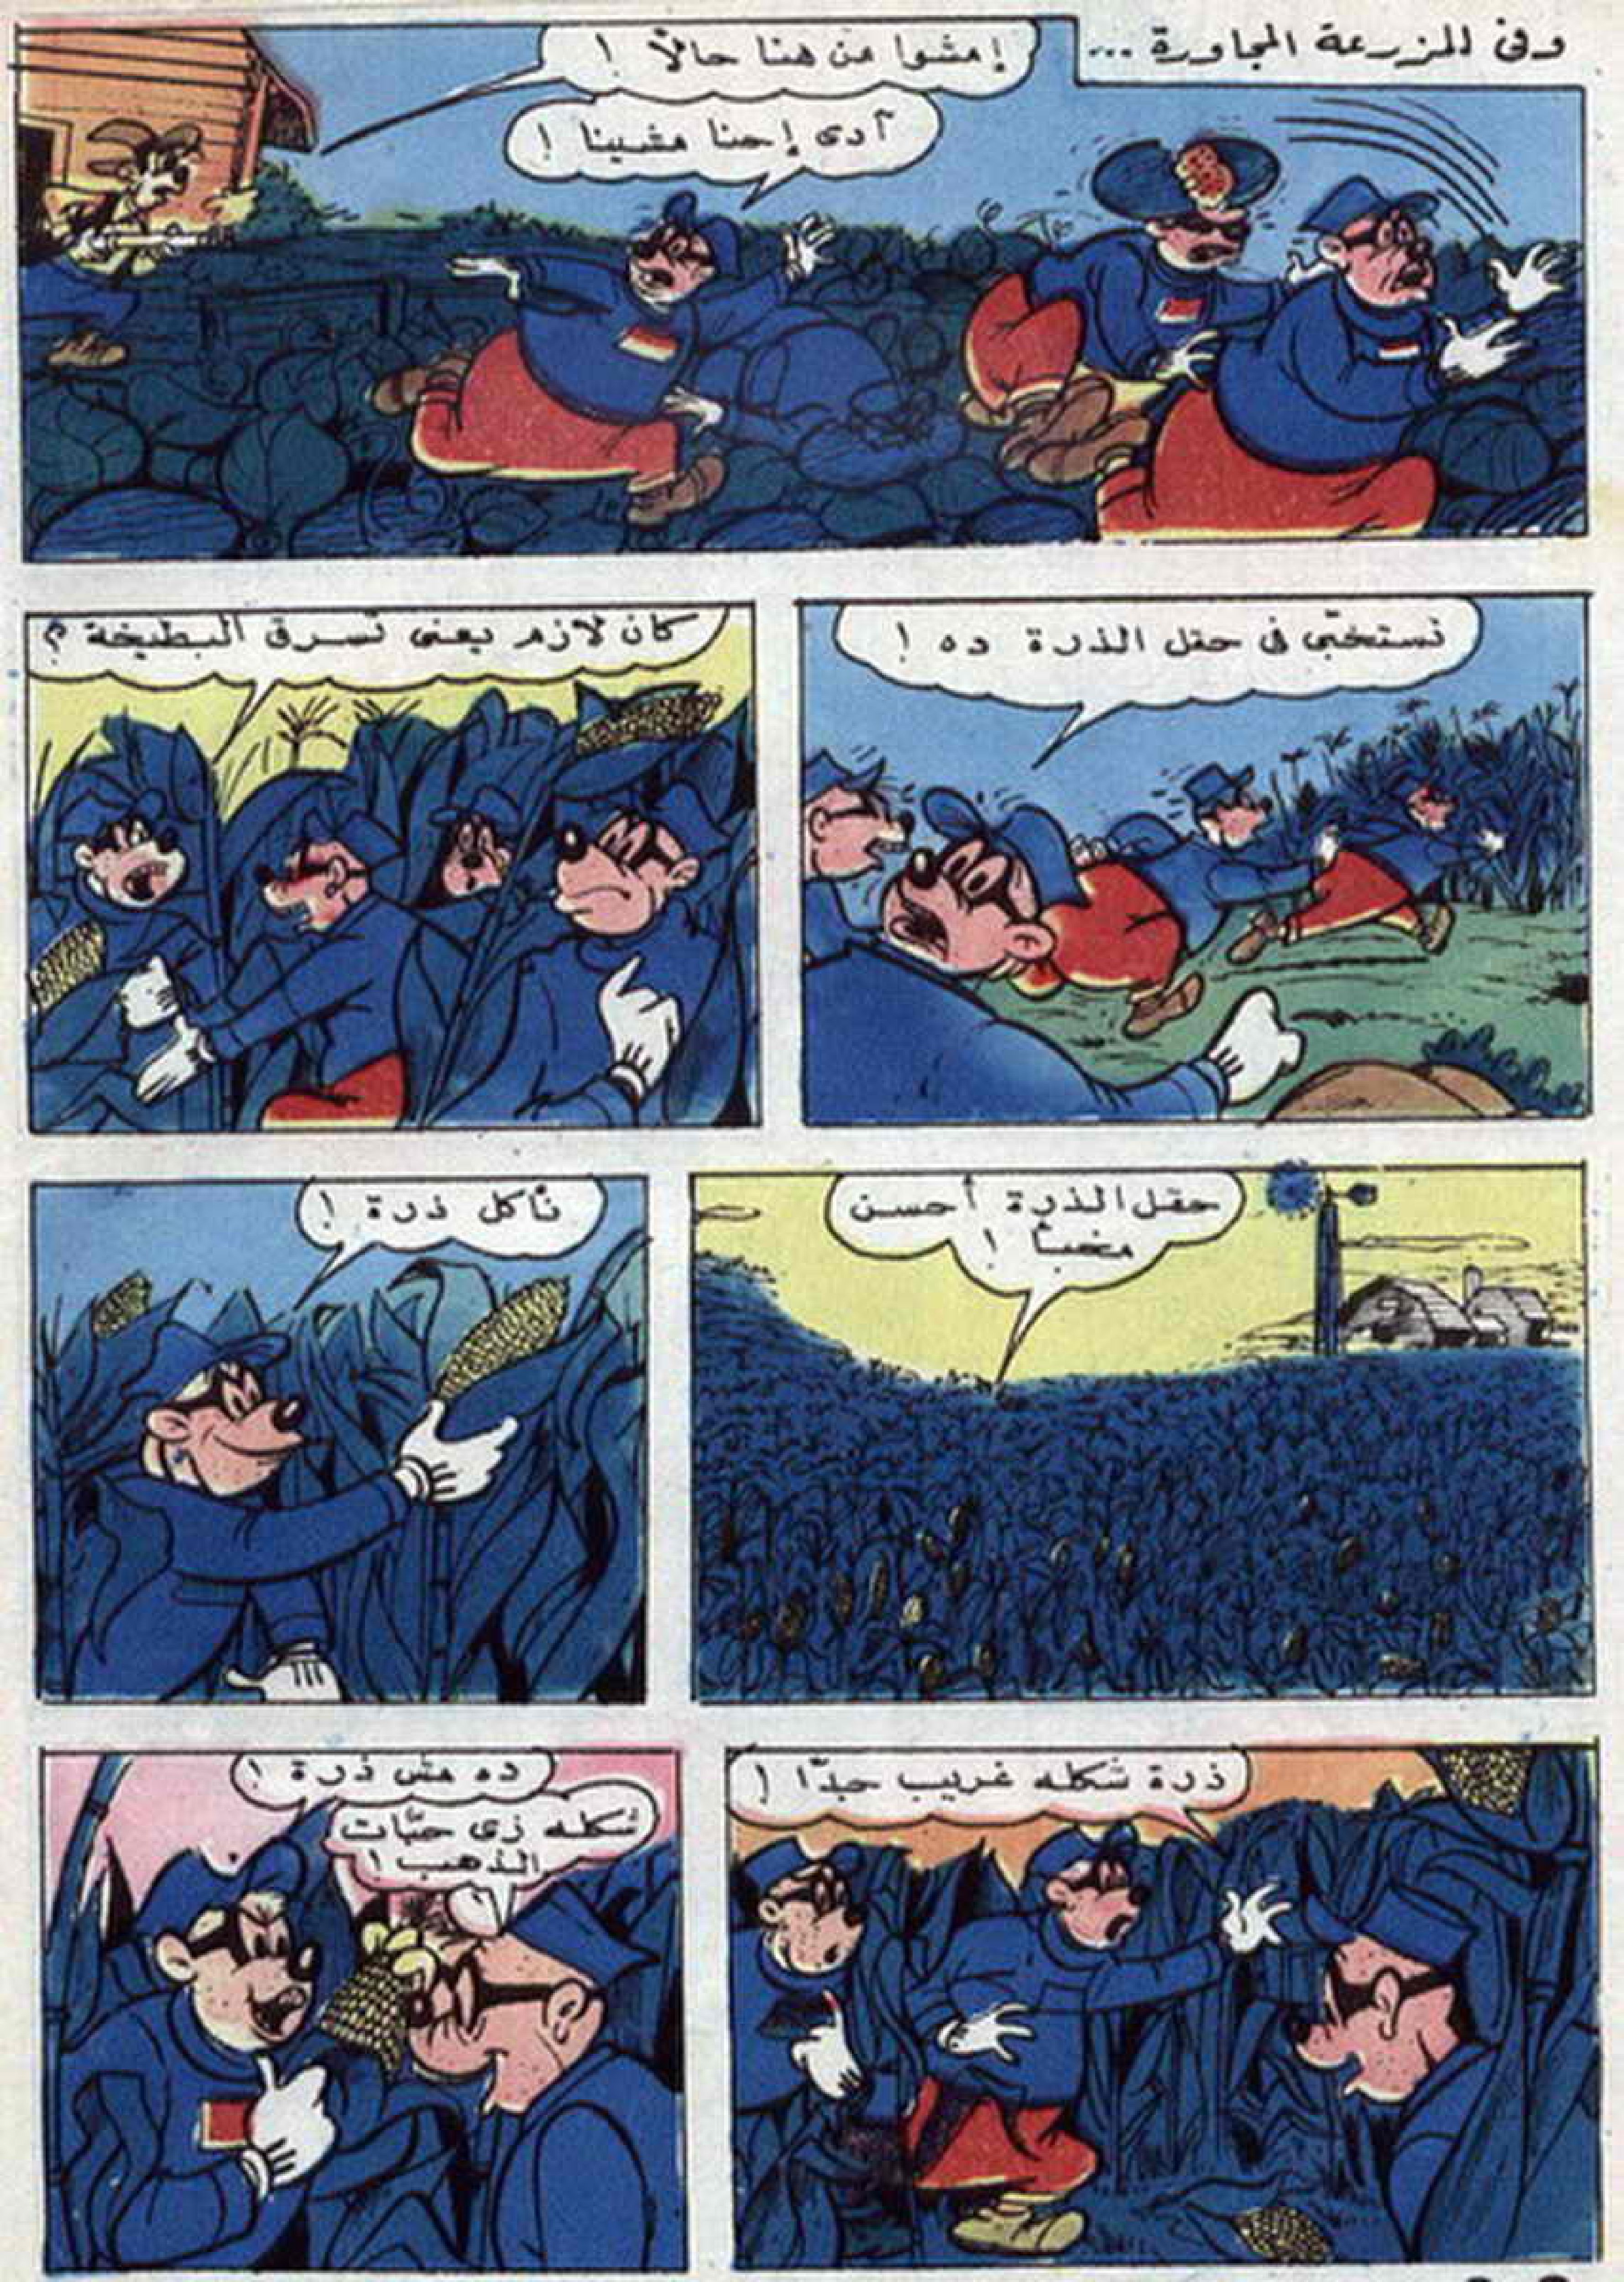 وفى المزرعة المجاورة ...
إمشوا من هنا حالاً !
آدى إحنا مشينا !
نستخبّى فى حقل الذرة ده !
كان لازم يعنى تسرق البطيخة ؟
حقل الذرة أحسن
مخبأ !
نأكل ذرة !
ذرة شكله غريب جدّا !
ده مش ذرة !
شكله زى حبّات
الذهب !